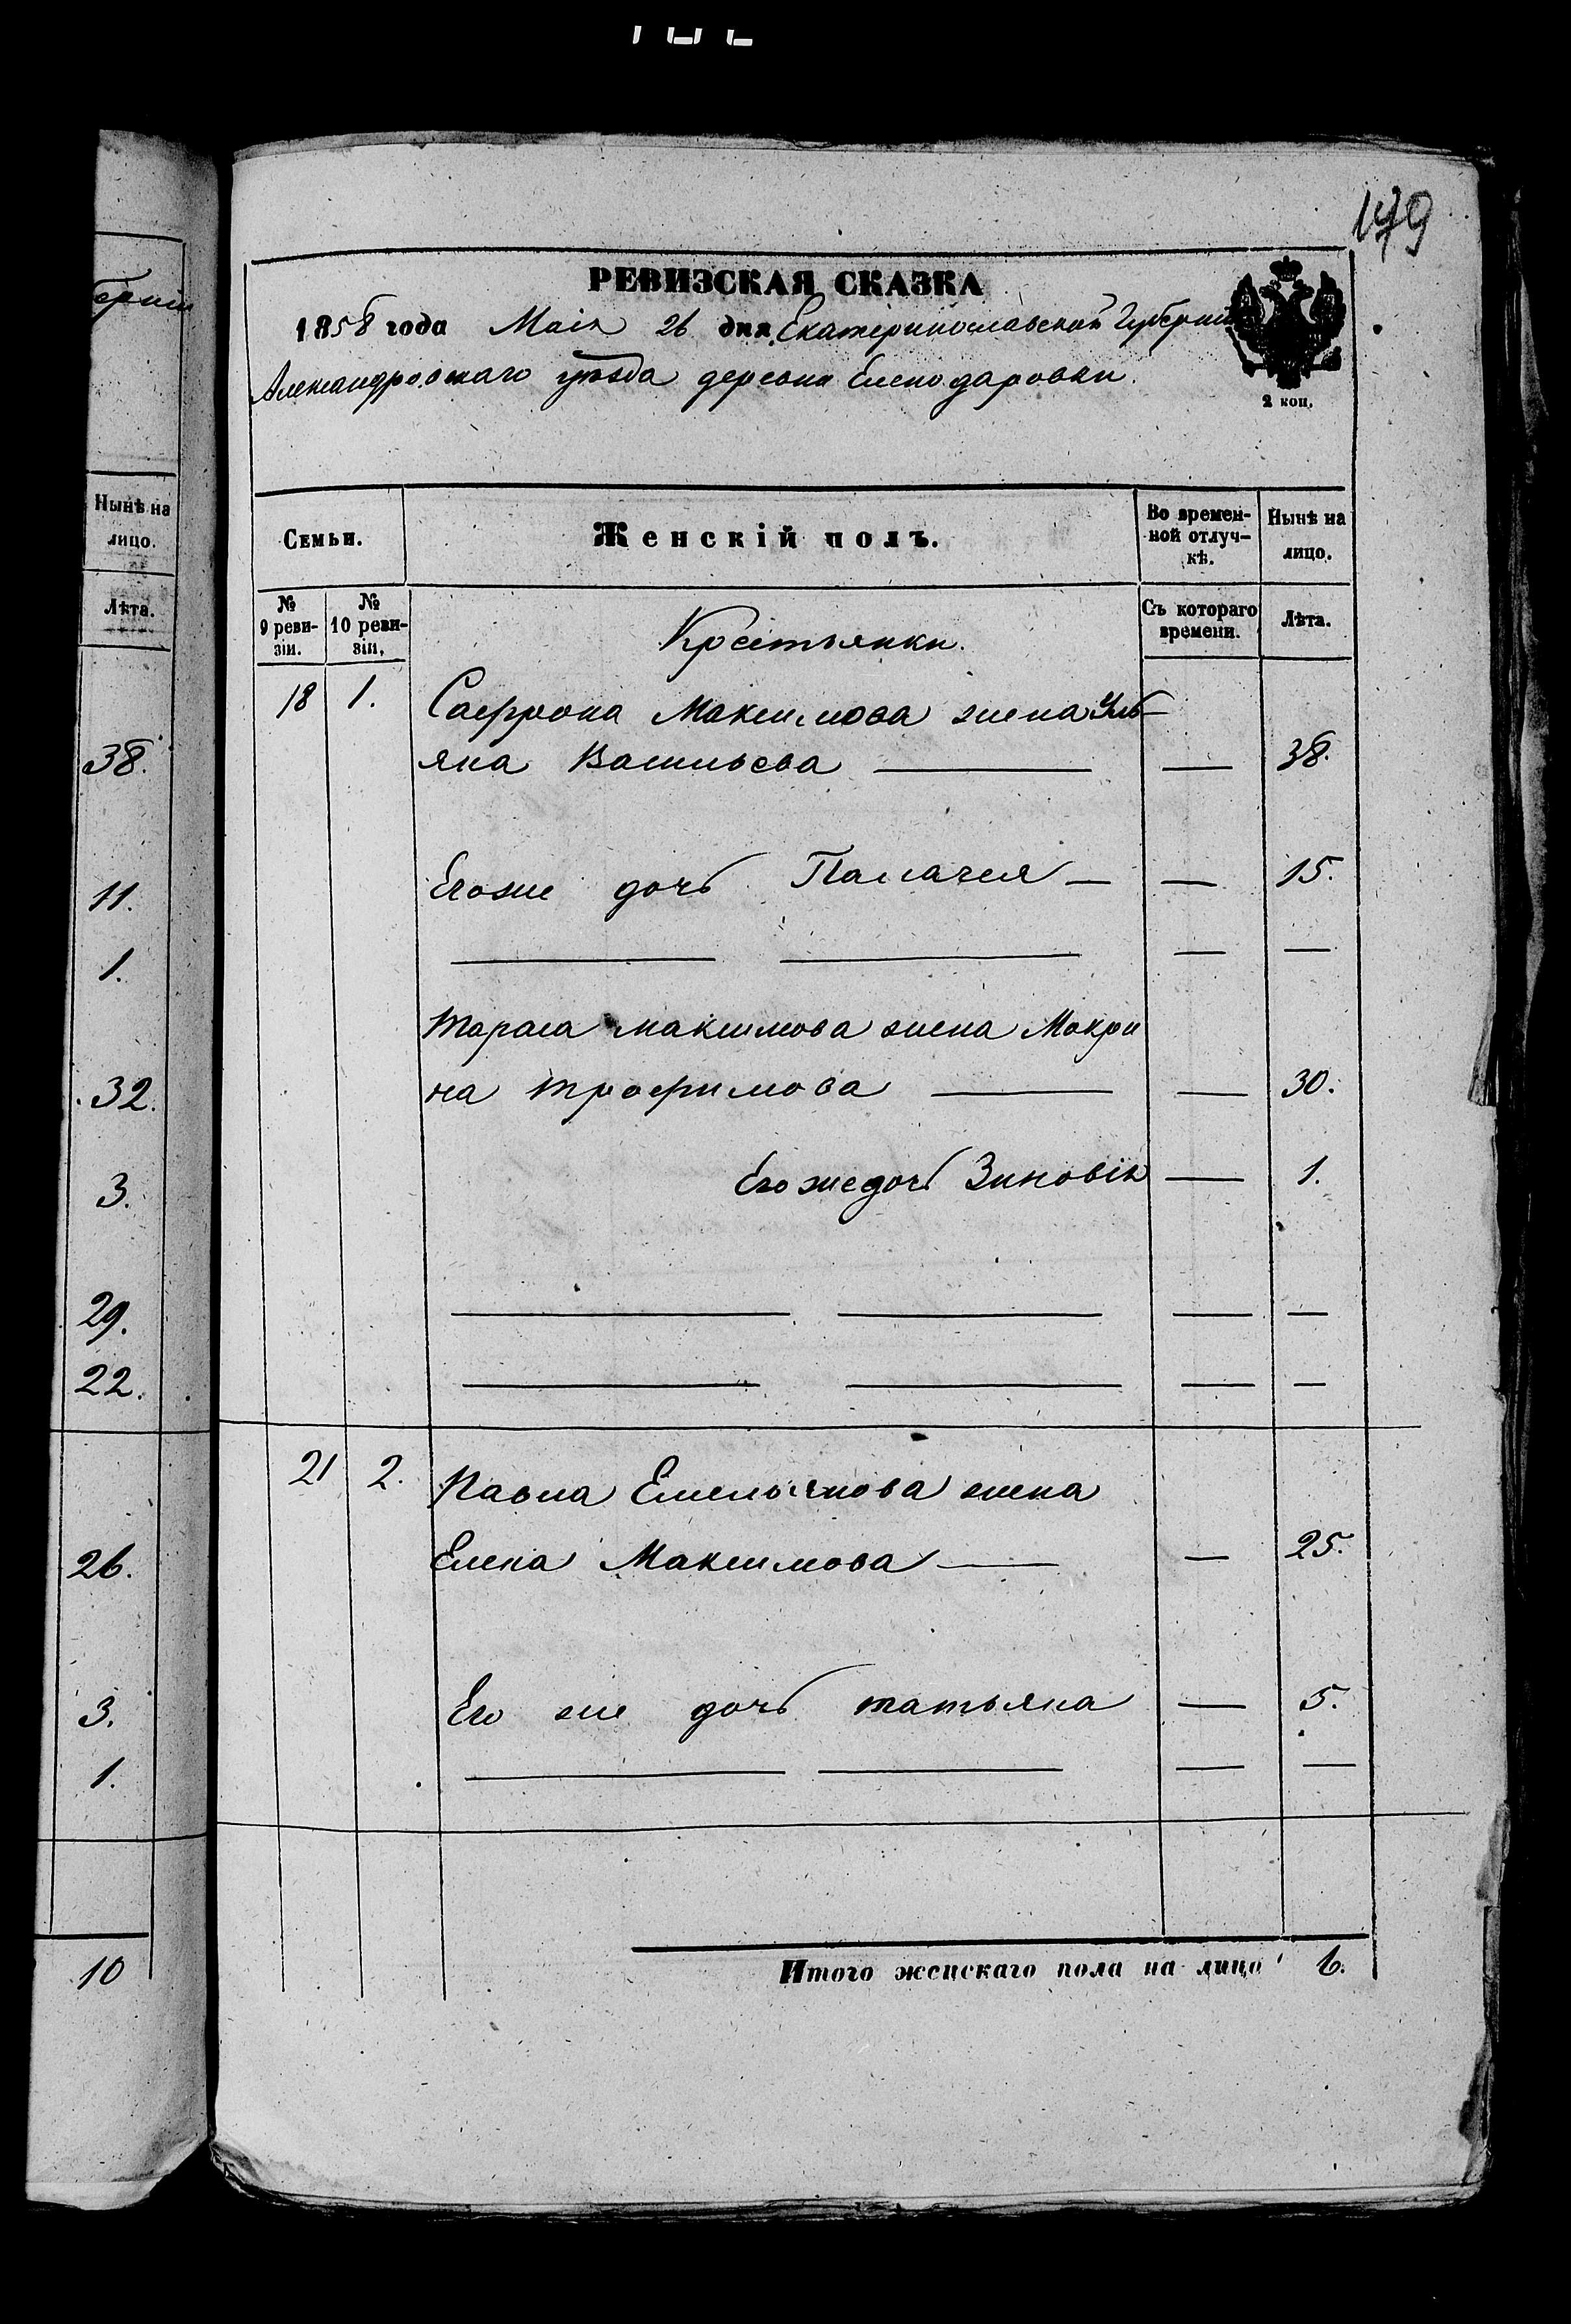 179
РЕВИЗСКАЯ СКАЗКА
1858 года Маія 26 дня Екатеринославской Губерніи
Александровскаго уѣзда деревни Еленодаровки.
2 коп.
ерніи
Нынѣ на
лицо.
Лѣта.
38.
11.
1.
32.
3.
29.
22.
26.
3.
1.
10
Семьи.
Женскій полъ.
Во времен-
ной отлуч-
кѣ.
Нынѣ на
лицо.
№
9 реви-
зіи.
№
10 реви-
зіи.
Съ котораго
времени.
Лѣта.
Крестьянки.
18 1. Сафрона Максимова жена Уль-
яна Васильева — — 38.
Егоже дочь Палагея — — 15.
— — — —
Тараса Максимова жена Макри
на Трофимова — — 30.
Его же дочь Зиновія — 1.
— — — —
— — — —
21 2. Павла Емельянова жена
Елена Максимова — — 25.
Его же дочь татьяна — 5.
— — — —
Итого женскаго пола на лицо 6.